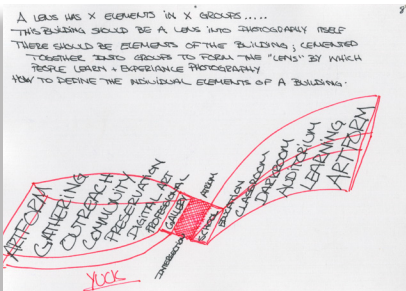 A LENS HAS X ELEMENTS IN X GROUPS.....
THIS BUILDING SHOULD BE A LENS INTO PHOTOGRAPHY ITSELF
THERE SHOULD BE ELEMENTS OF THE BUILDING; CEMENTED
TOGETHER INTO GROUPS TO FORM THE "LENS" BY WHICH
PEOPLE LEARN + EXPERIANCE PHOTOGRAPHY
HOW TO DEFINE THE INDIVIDUAL ELEMENTS OF A BUILDING.
ARTFORM
GATHERING
OUTREACH
COMMUNITY
PRESERVATION
DIGITAL ART
PROFESSIONAL
GALLERY
INTERSECTION
ATRIUM
SCHOOL
EDUCATION
CLASSROOM
DARKROOM
AUDITORIUM
LEARNING
ARTFORM
YUCK